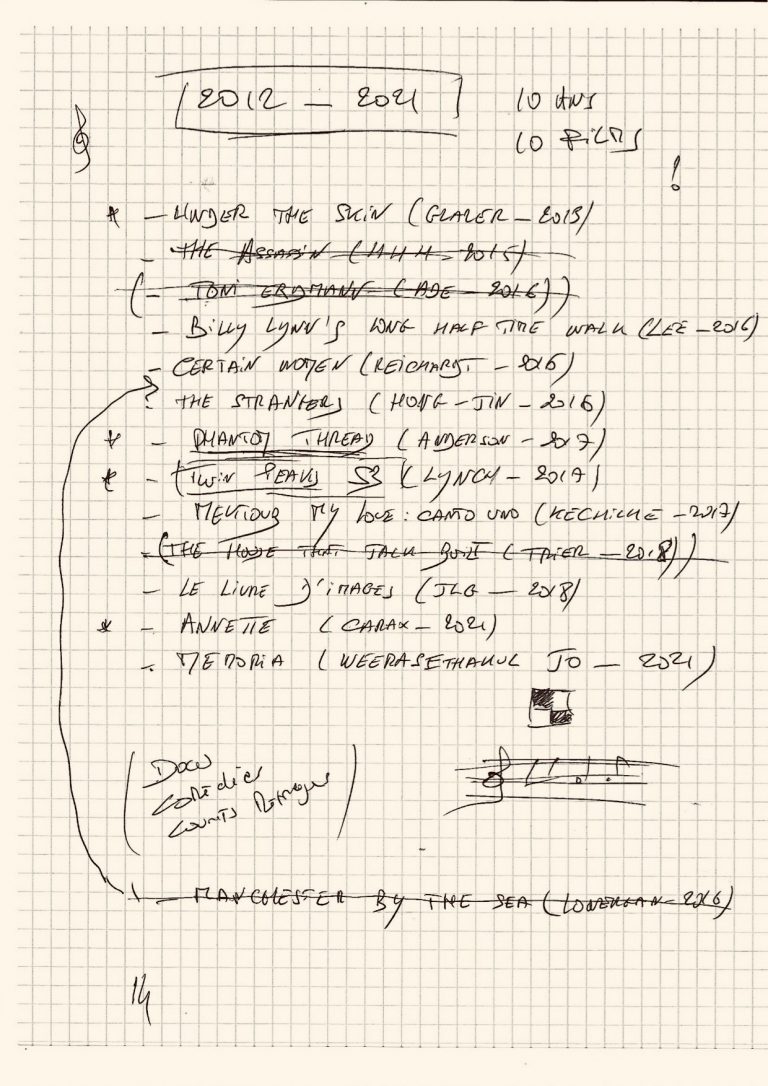 2012 - 2021
10 ANS
10 FILMS
!
* - UNDER THE SKIN (GLAZER - 2013)
- THE ASSASSIN (HHH - 2015)
(- TONI ERDMANN (ADE - 2016))
- BILLY LYNN'S LONG HALF TIME WALK (LEE - 2016)
- CERTAIN WOMEN (REICHARDT - 2016)
? THE STRANGERS (HONG-JIN - 2016)
* - PHANTOM THREAD (ANDERSON - 2017)
* - TWIN PEAKS S3 (LYNCH - 2017)
- MEKTOUB MY LOVE : CANTO UNO (KECHICHE - 2017)
- (THE HOUSE THAT JACK BUILT (TRIER - 2018))
- LE LIVRE D'IMAGES (JLG - 2018)
* - ANNETTE (CARAX - 2021)
- MEMORIA (WEERASETHAKUL JO - 2021)
(Docs
Comédies
Courts Métrages)
- MANCHESTER BY THE SEA (LONERGAN - 2016)
14